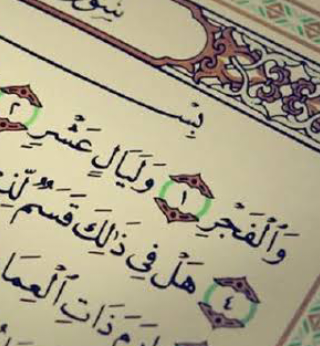 سُورَ
بِسْ
وَٱلْفَجْرِ ١ وَلَيَالٍ عَشْرٍ ٢
هَلْ فِى ذَٰلِكَ قَسَمٌ لِّذِى
٤
ذَاتِ ٱلْعِمَا